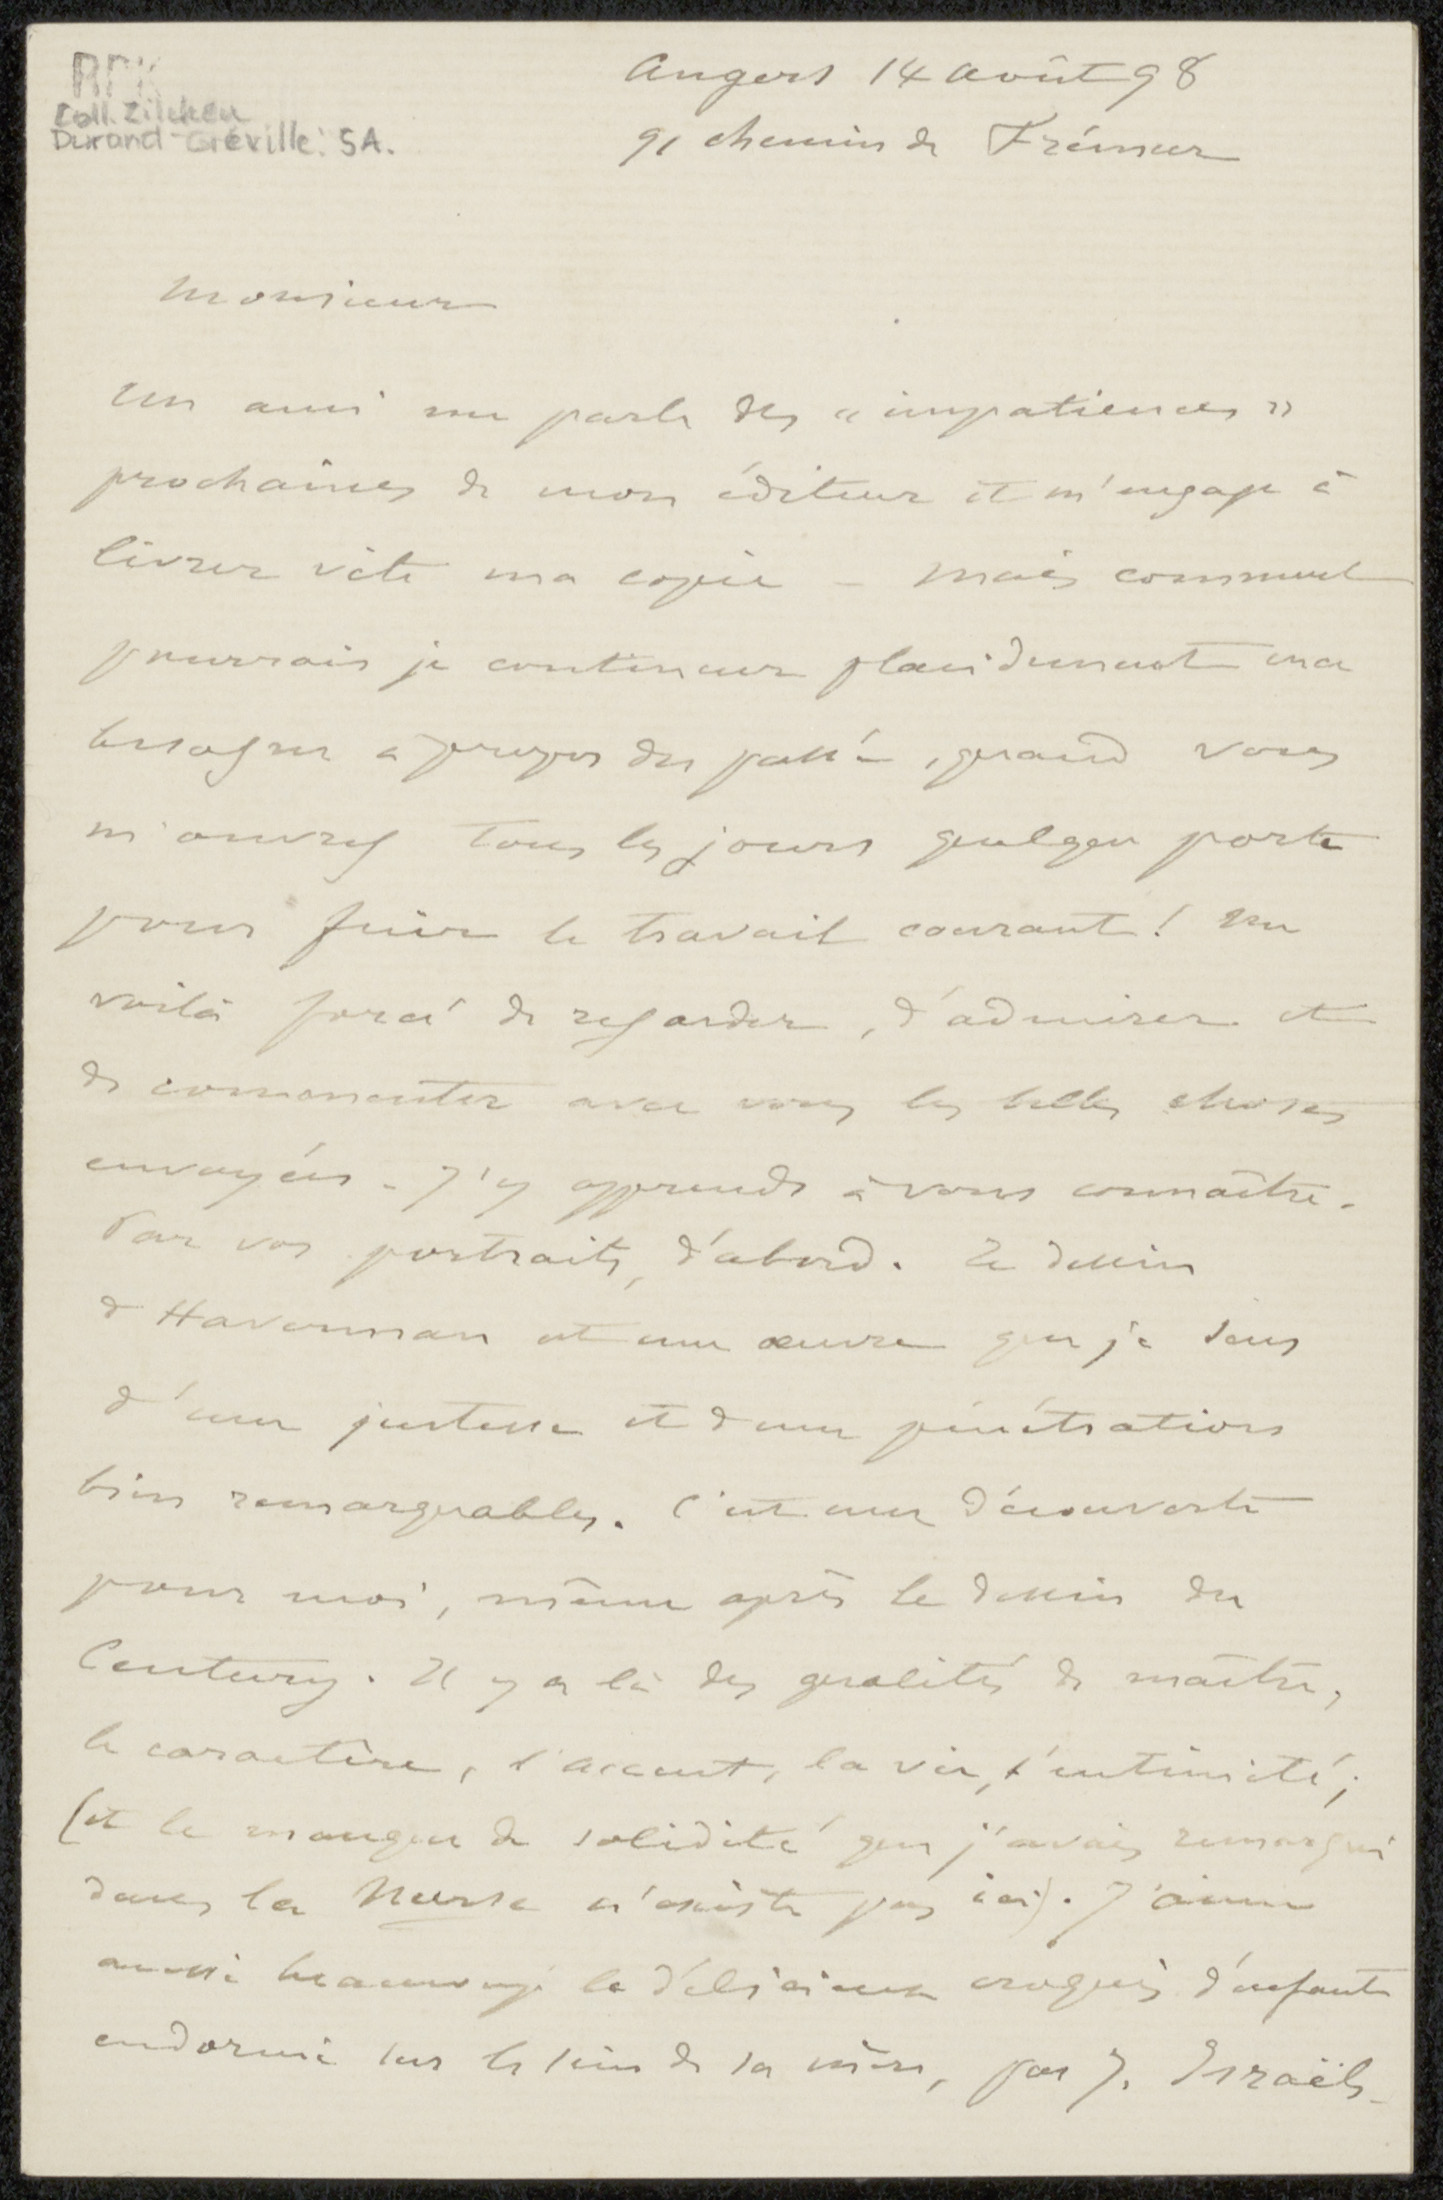 RPK
Coll. Zilcken
Durand-Gréville: 5A.
Angers 14 août 98
91 chemin de Frémur
Monsieur
Un ami me parle des « impatiences »
prochaines de mon éditeur et m'engage à
livrer vite ma copie – mais comment
pourrais je continuer placidement ma
besogne à propos du passé, quand vous
m'ouvrez tous les jours quelque porte
pour fuir le travail courant! Me
voilà forcé de regarder, d'admirer et
de commenter avec vous les belles choses
envoyées – J'y apprends à vous connaître.
Par vos portraits, d'abord. Le dessin
d'Haverman est une œuvre que je sens
d'une justesse et d'une pénétration
bien remarquables. C'est une découverte
pour moi, même après le dessin du
Century. Il y a là des qualités de maître,
le caractère, l'accent, la vie, l'intimité;
(et le manque de solidité que j'avais remarqué
dans la Nurse n'existe pas ici). J'aime
aussi beaucoup le délicieux croquis d'enfant
endormi sur le sein de sa mère, par J. Israëls –